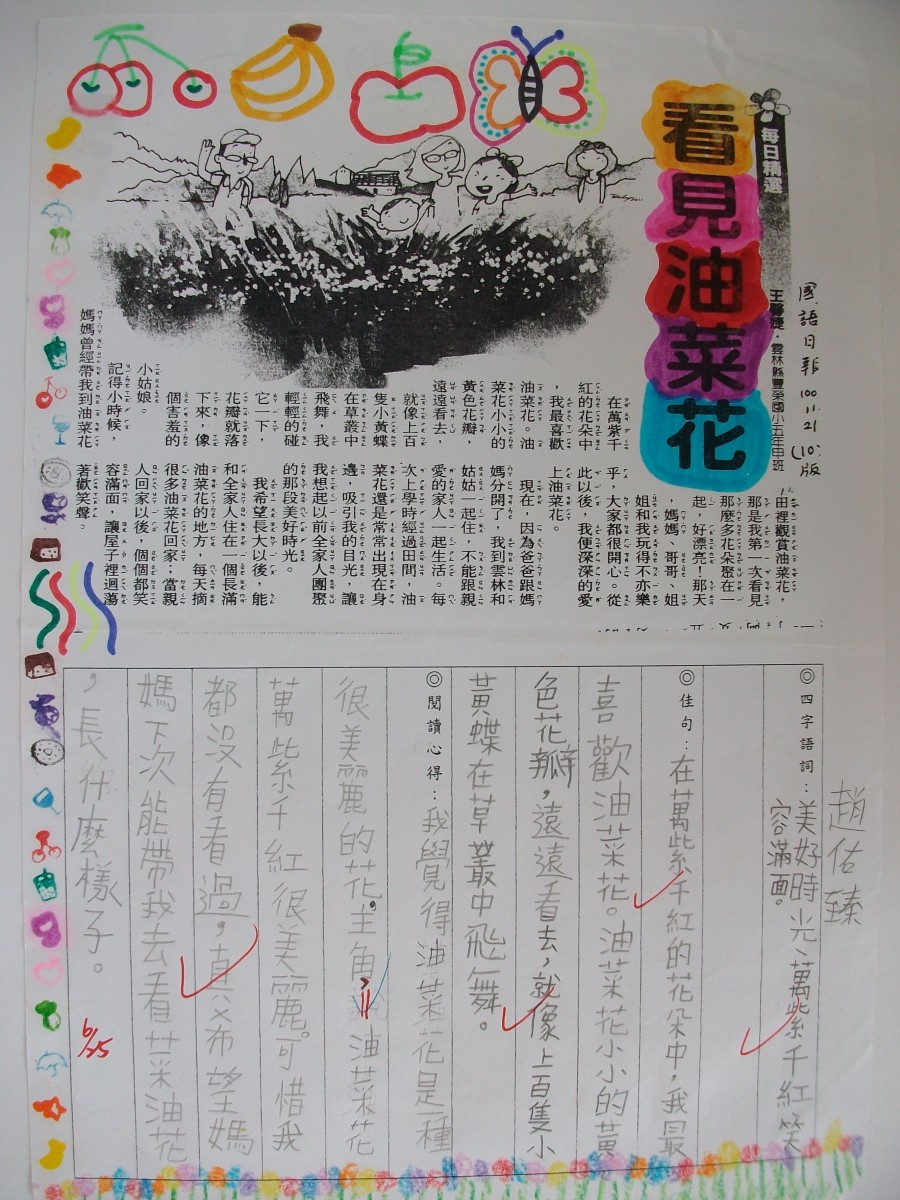 每日精選
看見油菜花
國語日報 100.11.21 (10)版
雲林縣豐榮國小五年甲班
在萬紫千
紅的花朵中
，我最喜歡
油菜花。油
菜花小小的
黃色花瓣，
遠遠看去，
就像上百
隻小黃蝶
在草叢中
飛舞，我
輕輕的碰
它一下，
花瓣就落
下來，像
個害羞的
小姑娘。
記得小時候，
媽媽曾經帶我到油菜花
田裡觀賞油菜花，
那是我第一次看見
那麼多花朵聚在一
起，好漂亮！那天
，媽媽、哥哥、姐
姐和我玩得不亦樂
乎，大家都很開心。從
此以後，我便深深的愛
上油菜花。
現在，因為爸爸跟媽
媽分開了，我到雲林和
姑姑一起住，不能跟親
愛的家人一起生活。每
次上學時經過田間，油
菜花還是常常出現在身
邊，吸引我的目光，讓
我想起以前全家人團聚
的那段美好時光。
我希望長大以後，能
和全家人住在一個長滿
油菜花的地方，每天摘
很多油菜花回家；當親
人回家以後，個個都笑
容滿面，讓屋子裡迴蕩
著歡笑聲。
趙佑臻
◎四字語詞：美好時光、萬紫千紅、笑
容滿面。
◎佳句：在萬紫千紅的花朵中，我最
喜歡油菜花。油菜花小小的黃
色花瓣，遠遠看去，就像上百隻小
黃蝶在草叢中飛舞。
◎閱讀心得：我覺得油菜花是一種
很美麗的花，主角說：油菜花
萬紫千紅很美麗。可惜我
都沒有看過，真希望媽
媽下次能帶我去看菜油花
，長什麼樣子。
6/25